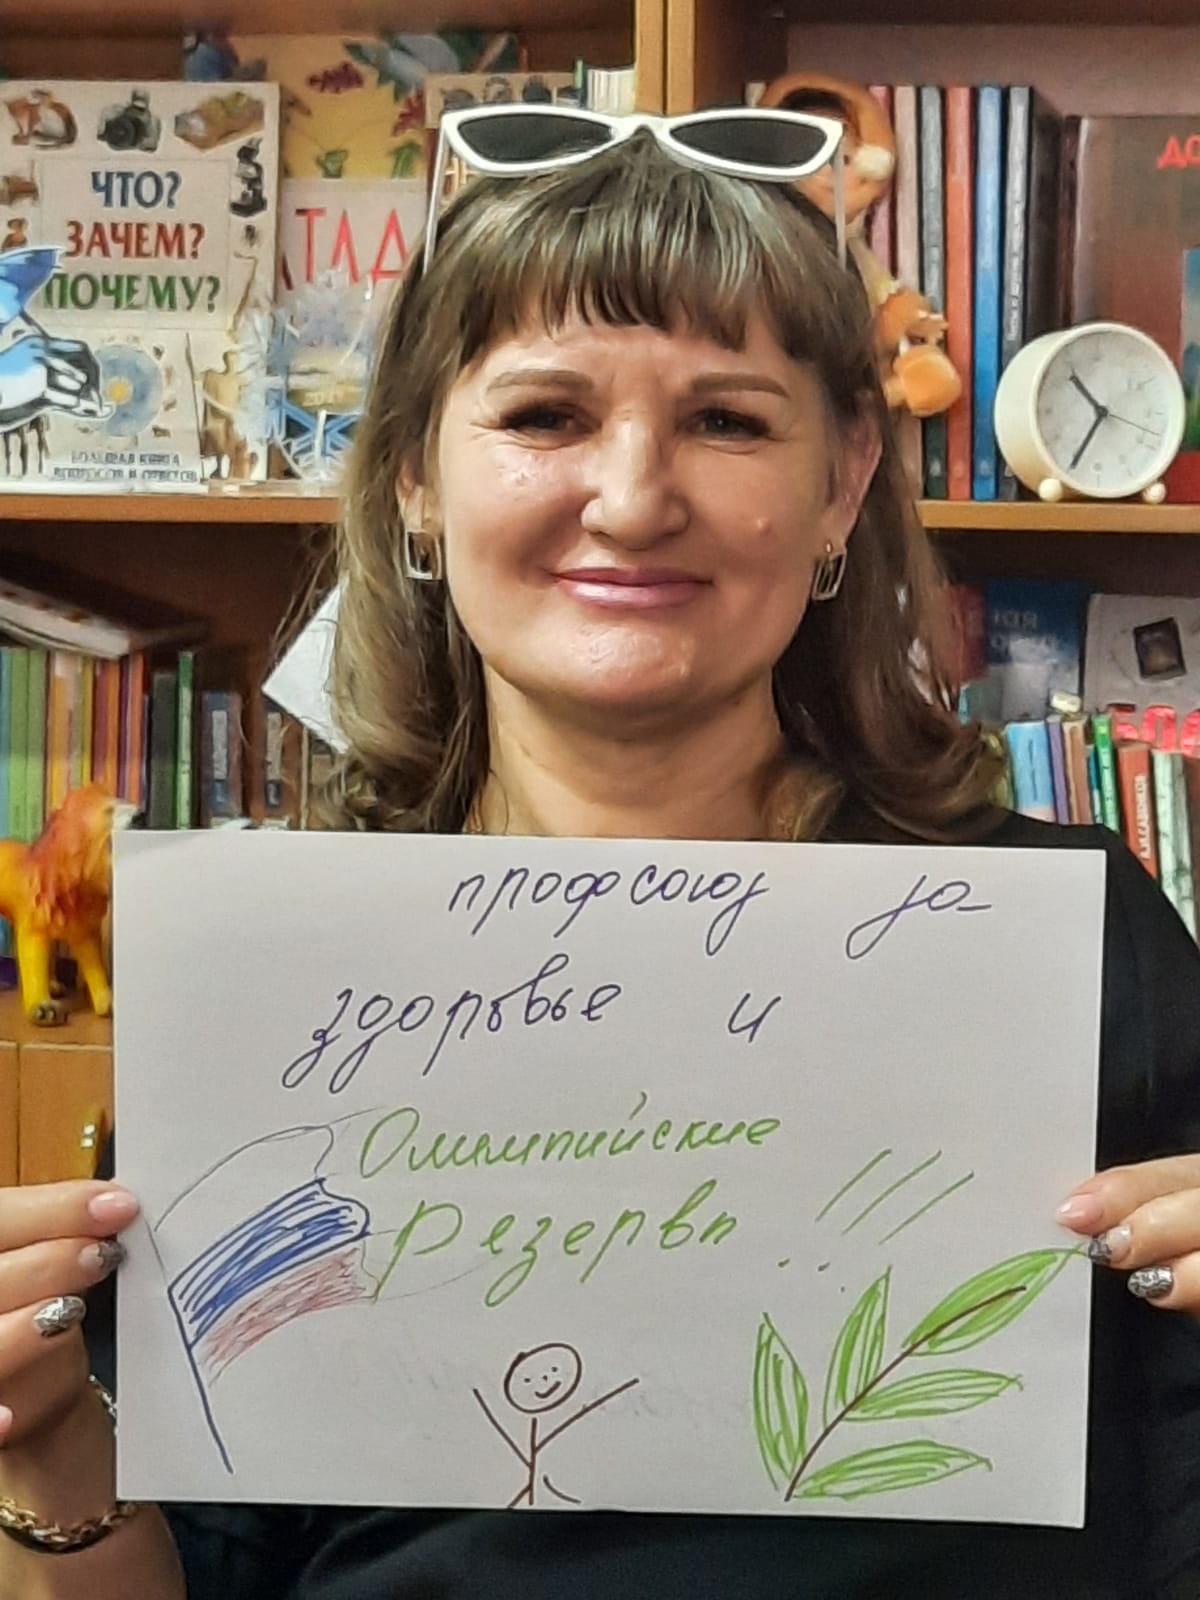 ЧТО?
ЗАЧЕМ?
ПОЧЕМУ?
БОЛЬШАЯ КНИГА
ВОПРОСОВ И ОТВЕТОВ
АТЛА
2021
ДО
БОЛ
профсоюз за
здоровье и
Олимпийские
Резервы !!!